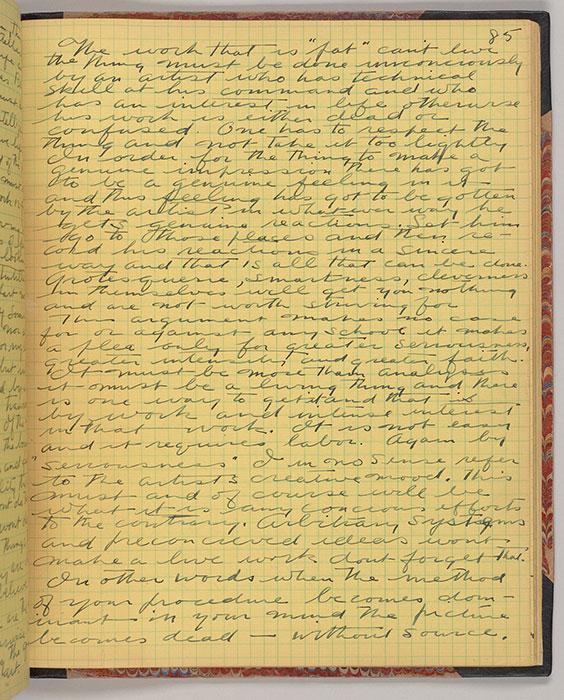 85
The work that is "pat" can't live
the thing must be done unconciously
by an artist who has technical
skill at his command and who
has an interest in life otherwise
his work is either dead or
confused. One has to respect the
thing and not take it too lightly
In order for the thing to make a
genuine impression there has got
to be a genuine feeling in it
and this feeling has got to be gotten
by the artist in whatever way he
gets genuine reactions. Let him
go to those places and then re-
cord his reactions in a sincere
way and that is all that can be done.
Grotesquerie, smartness, cleverness
in themselves will get you nothing
and are not worth striving for
This argument makes no case
for or against any school it makes
a plea only for greater seriousness,
greater intensity and greater faith.
It must be more than analysis
it must be a living thing and there
is one way to get it and that is
by work and intense interest
in that work. It is not easy
and it requires labor. Again by
"seriousness" I in no sense refer
to the artist's creative mood. This
must and of course will be
what it is any concious efforts
to the contrary. Arbitrary systems
and preconceived ideas wont
make a live work dont forget that.
In other words when the method
of your procedure becomes dom-
inant in your mind the picture
becomes dead — without source.